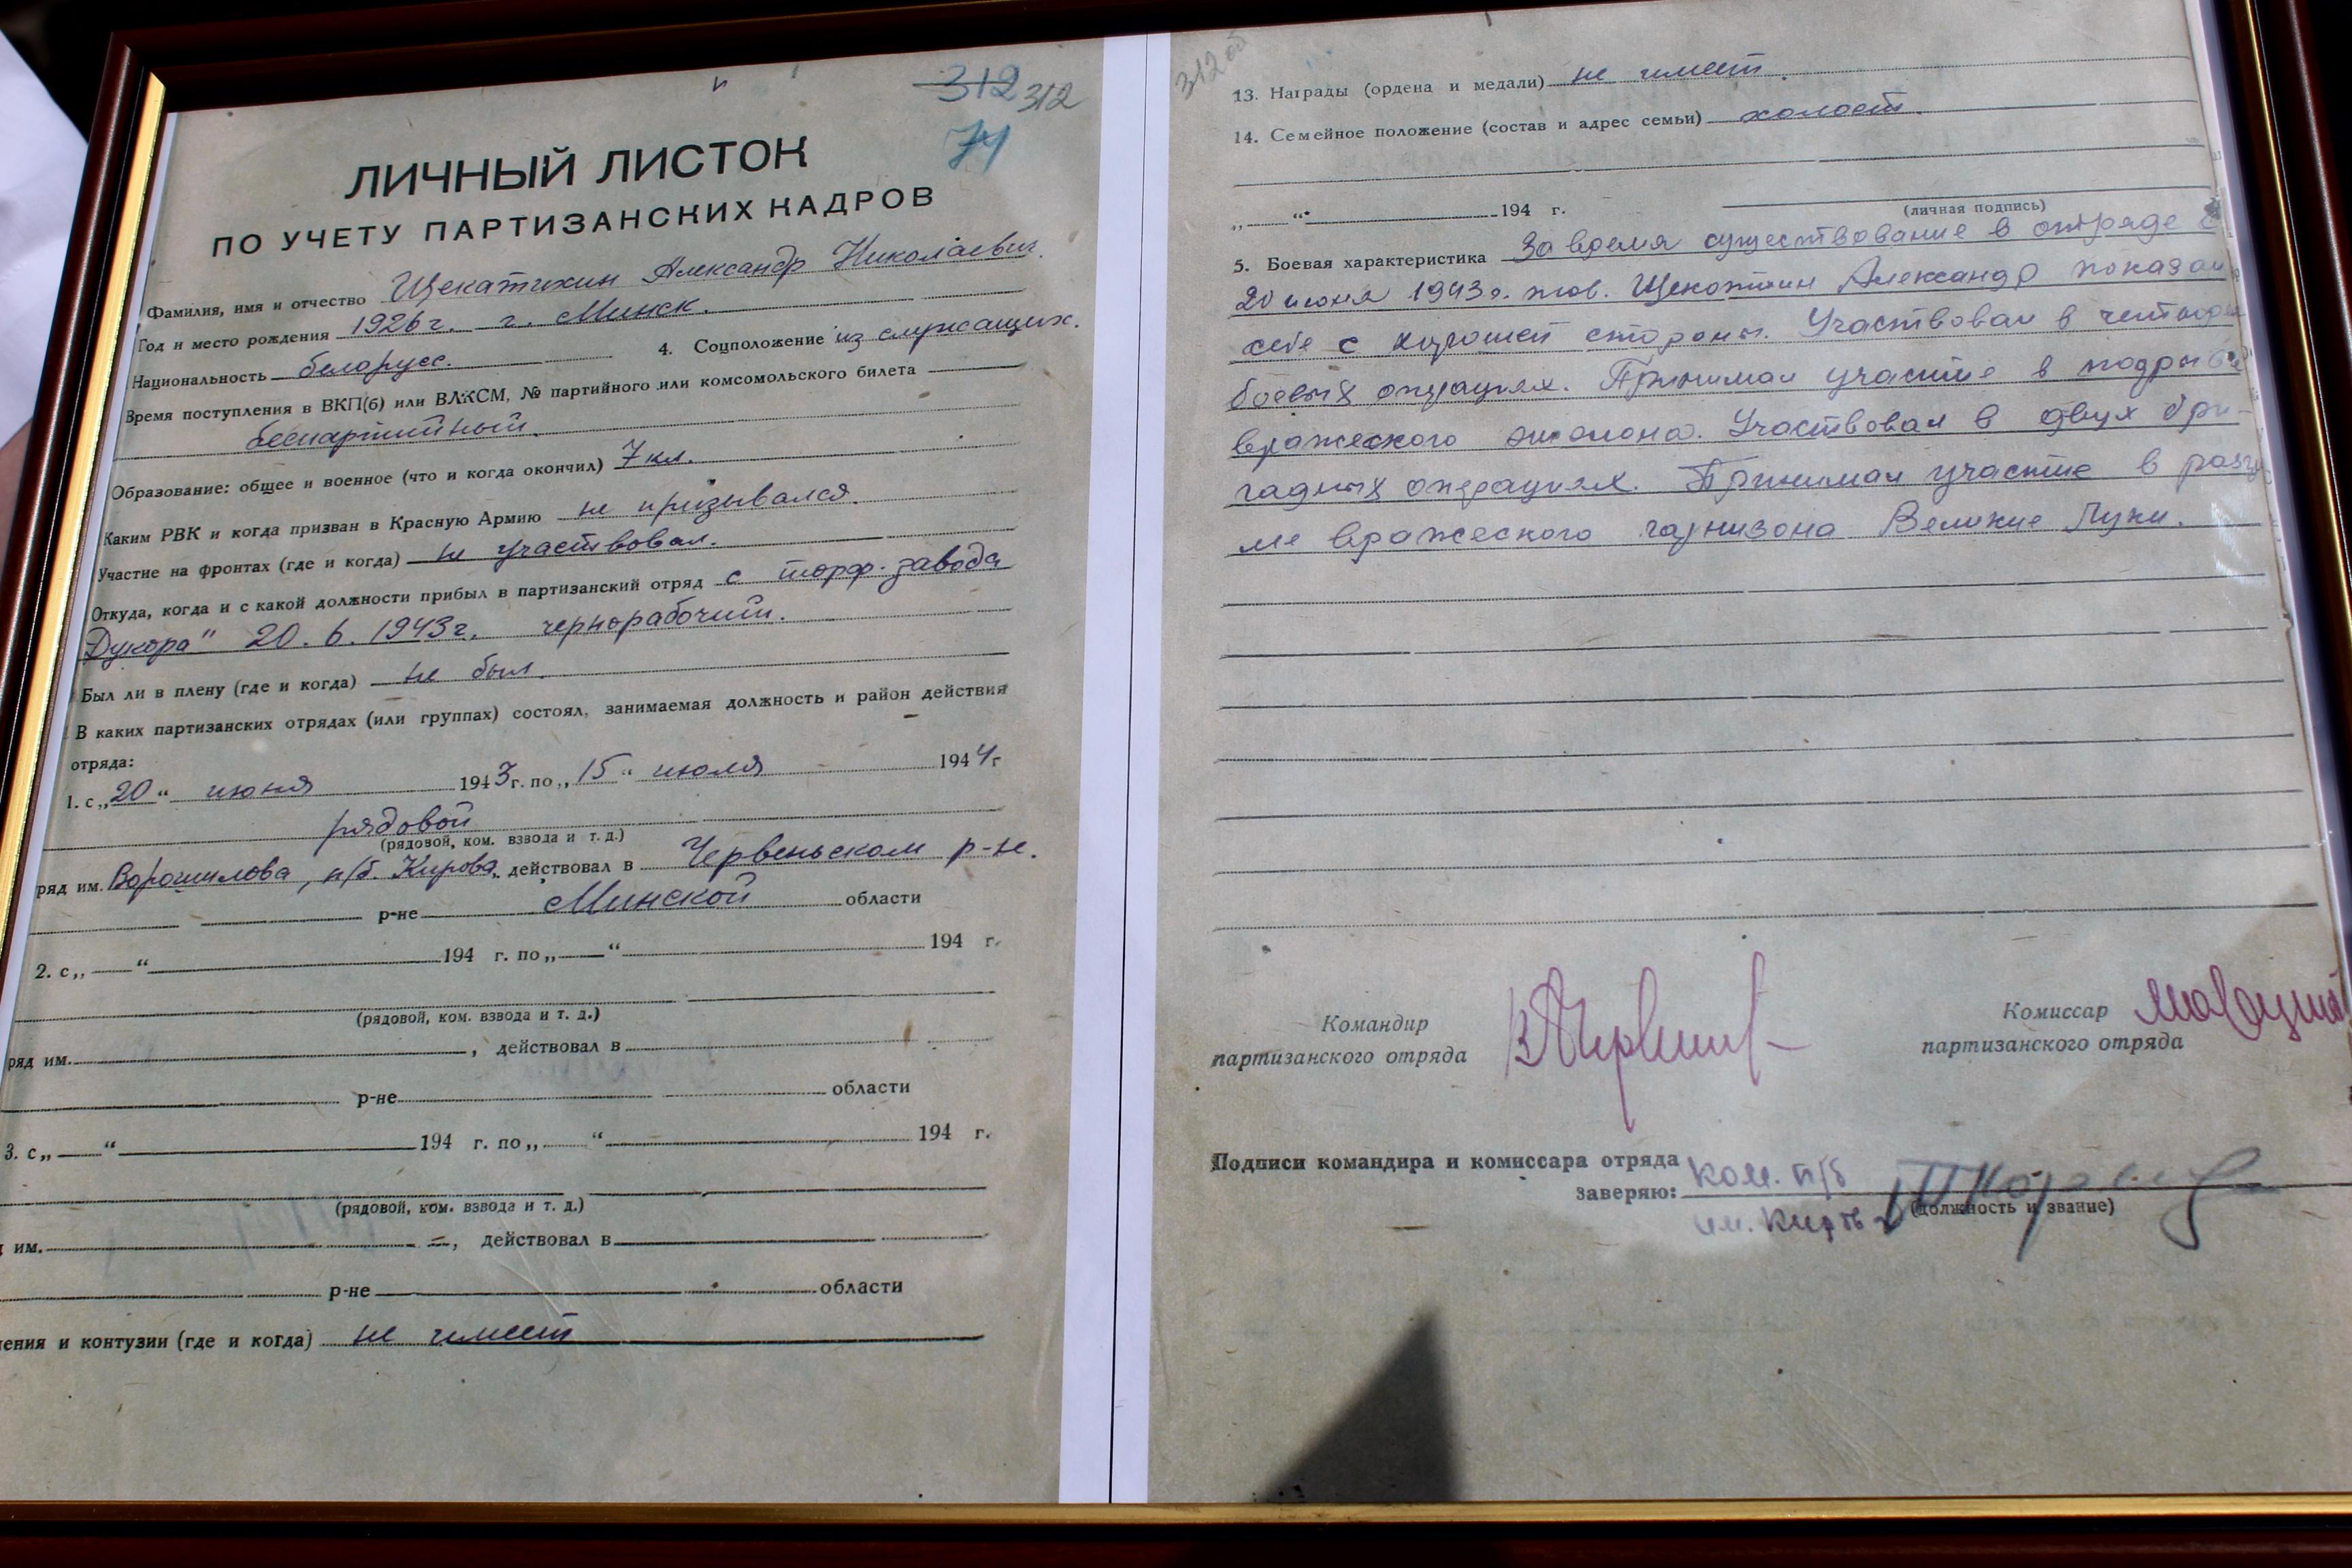 312 312
74
ЛИЧНЫЙ ЛИСТОК
ПО УЧЕТУ ПАРТИЗАНСКИХ КАДРОВ
Фамилия, имя и отчество Щекатихин Александр Николаевич.
Год и место рождения 1926 г. г. Минск.
Национальность белорусс. 4. Соцположение из служащих.
Время поступления в ВКП(б) или ВЛКСМ, № партийного или комсомольского билета
беспартийный.
Образование: общее и военное (что и когда окончил) 7 кл.
Каким РВК и когда призван в Красную Армию не призывался.
Участие на фронтах (где и когда) не участвовал.
Откуда, когда и с какой должности прибыл в партизанский отряд с торф. завода
Дукора" 20. 6. 1943 г. чернорабочий.
Был ли в плену (где и когда) не был.
В каких партизанских отрядах (или группах) состоял, занимаемая должность и район действия
отряда:
1. с „20“ июня 1943 г. по „15“ июля 1944 г
рядовой
(рядовой, ком. взвода и т. д.)
ряд им. Ворошилова, п/б. Кирова, действовал в Червеньском р-не.
р-не Минской области
2. с „ “ 194 г. по „ “ 194 г.
(рядовой, ком. взвода и т. д.)
ряд им. , действовал в
р-не области
3. с „ “ 194 г. по „ “ 194 г.
(рядовой, ком. взвода и т. д.)
им. , действовал в
р-не области
ения и контузии (где и когда) не имеет
312 об
13. Награды (ордена и медали) не имеет.
14. Семейное положение (состав и адрес семьи) холост.
„ “ 194 г.
(личная подпись)
5. Боевая характеристика За время существование в отряде с
20 июня 1943 г. тов. Щекотихин Александр показал
себе с хорошей стороны. Участвовал в четырех
боевых операциях. Принимал участие в подрыве
вражеского эшелона. Участвовал в двух бри-
гадных операциях. Принимал участие в разгро
ме вражеского гарнизона Великие Луки.
Командир
партизанского отряда
Комиссар
партизанского отряда
Подписи командира и комиссара отряда
заверяю: ком. п/б
им. Кирова
(должность и звание)